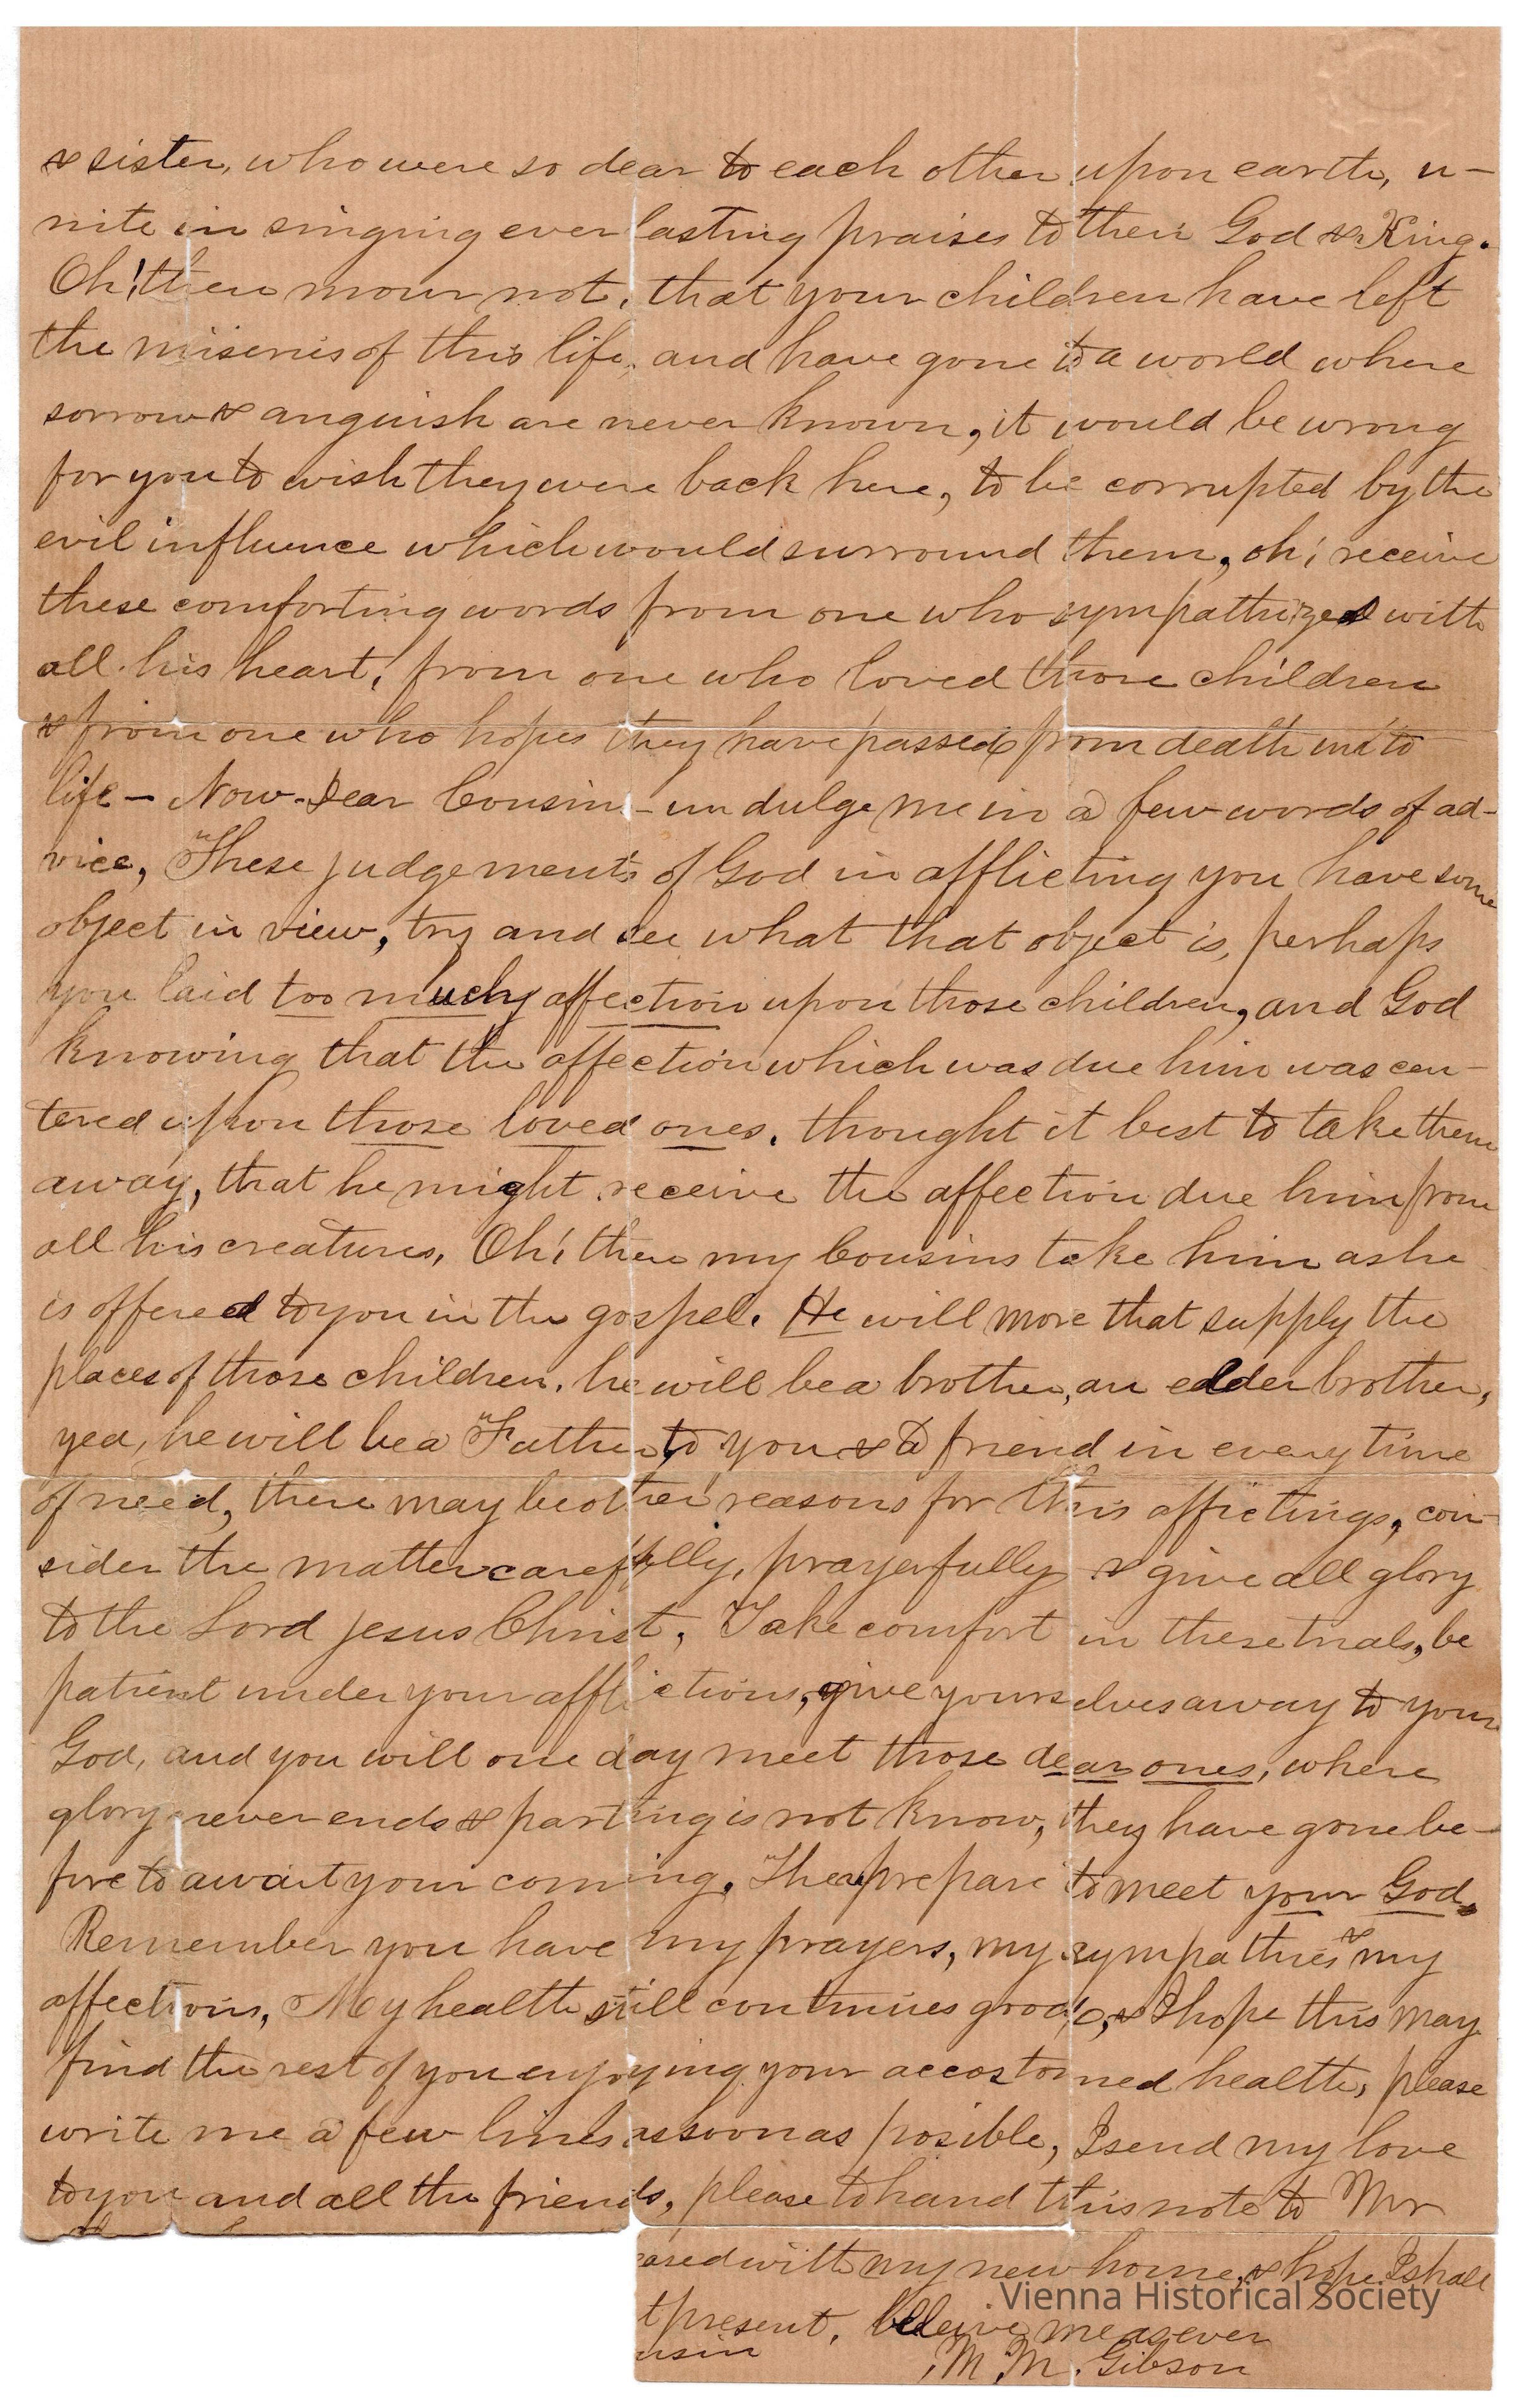 & sister, who were so dear to each other upon earth, u-
nite in singing ever lasting praises to their God & King.
Oh! then mourn not, that your children have left
the miseries of this life, and have gone to a world where
sorrow & anguish are never known, it would be wrong
for you to wish they were back here, to be corrupted by the
evil influence which would surround them, oh! receive
these comforting words from one who sympathized with
all his heart, from one who loved those children
& from one who hopes they have passed from death unto
life - Now Dear Cousin - undulge me in a few words of ad-
vice, These judgements of God in afflicting you have some
object in view, try and see what that object is, perhaps
you laid too much affection upon those children, and God
knowing that the affection which was due him was cen-
tered upon those loved ones, thought it best to take them
away, that he might receive the affection due him from
all his creatures, Oh! then my Cousins take him as he
is offered to you in the gospel. He will more that supply the
places of those children, he will be a brother, an elder brother,
yea, he will be a Father to you & a friend in every time
of need, there may be other reasons for this afflictings, con-
sider the matter carefully, prayerfully & give all glory
to the Lord Jesus Christ, Take comfort in these trials, be
patient under your afflictions, give yourselves away to your
God, and you will one day meet those dear ones, where
glory never ends & parting is not know, they have gone be-
fore to await your coming. Then prepare to meet your God.
Remember you have my prayers, my sympathies & my
affections, My health still continues good, & I hope this may
find the rest of you enjoying your accostomed health, please
write me a few lines as soon as posible, I send my love
to you and all the friends, please to hand this note to Mr
with my new home, & hope I shall
t present, beleive me as ever
usin M. M. Gibson
Vienna Historical Society